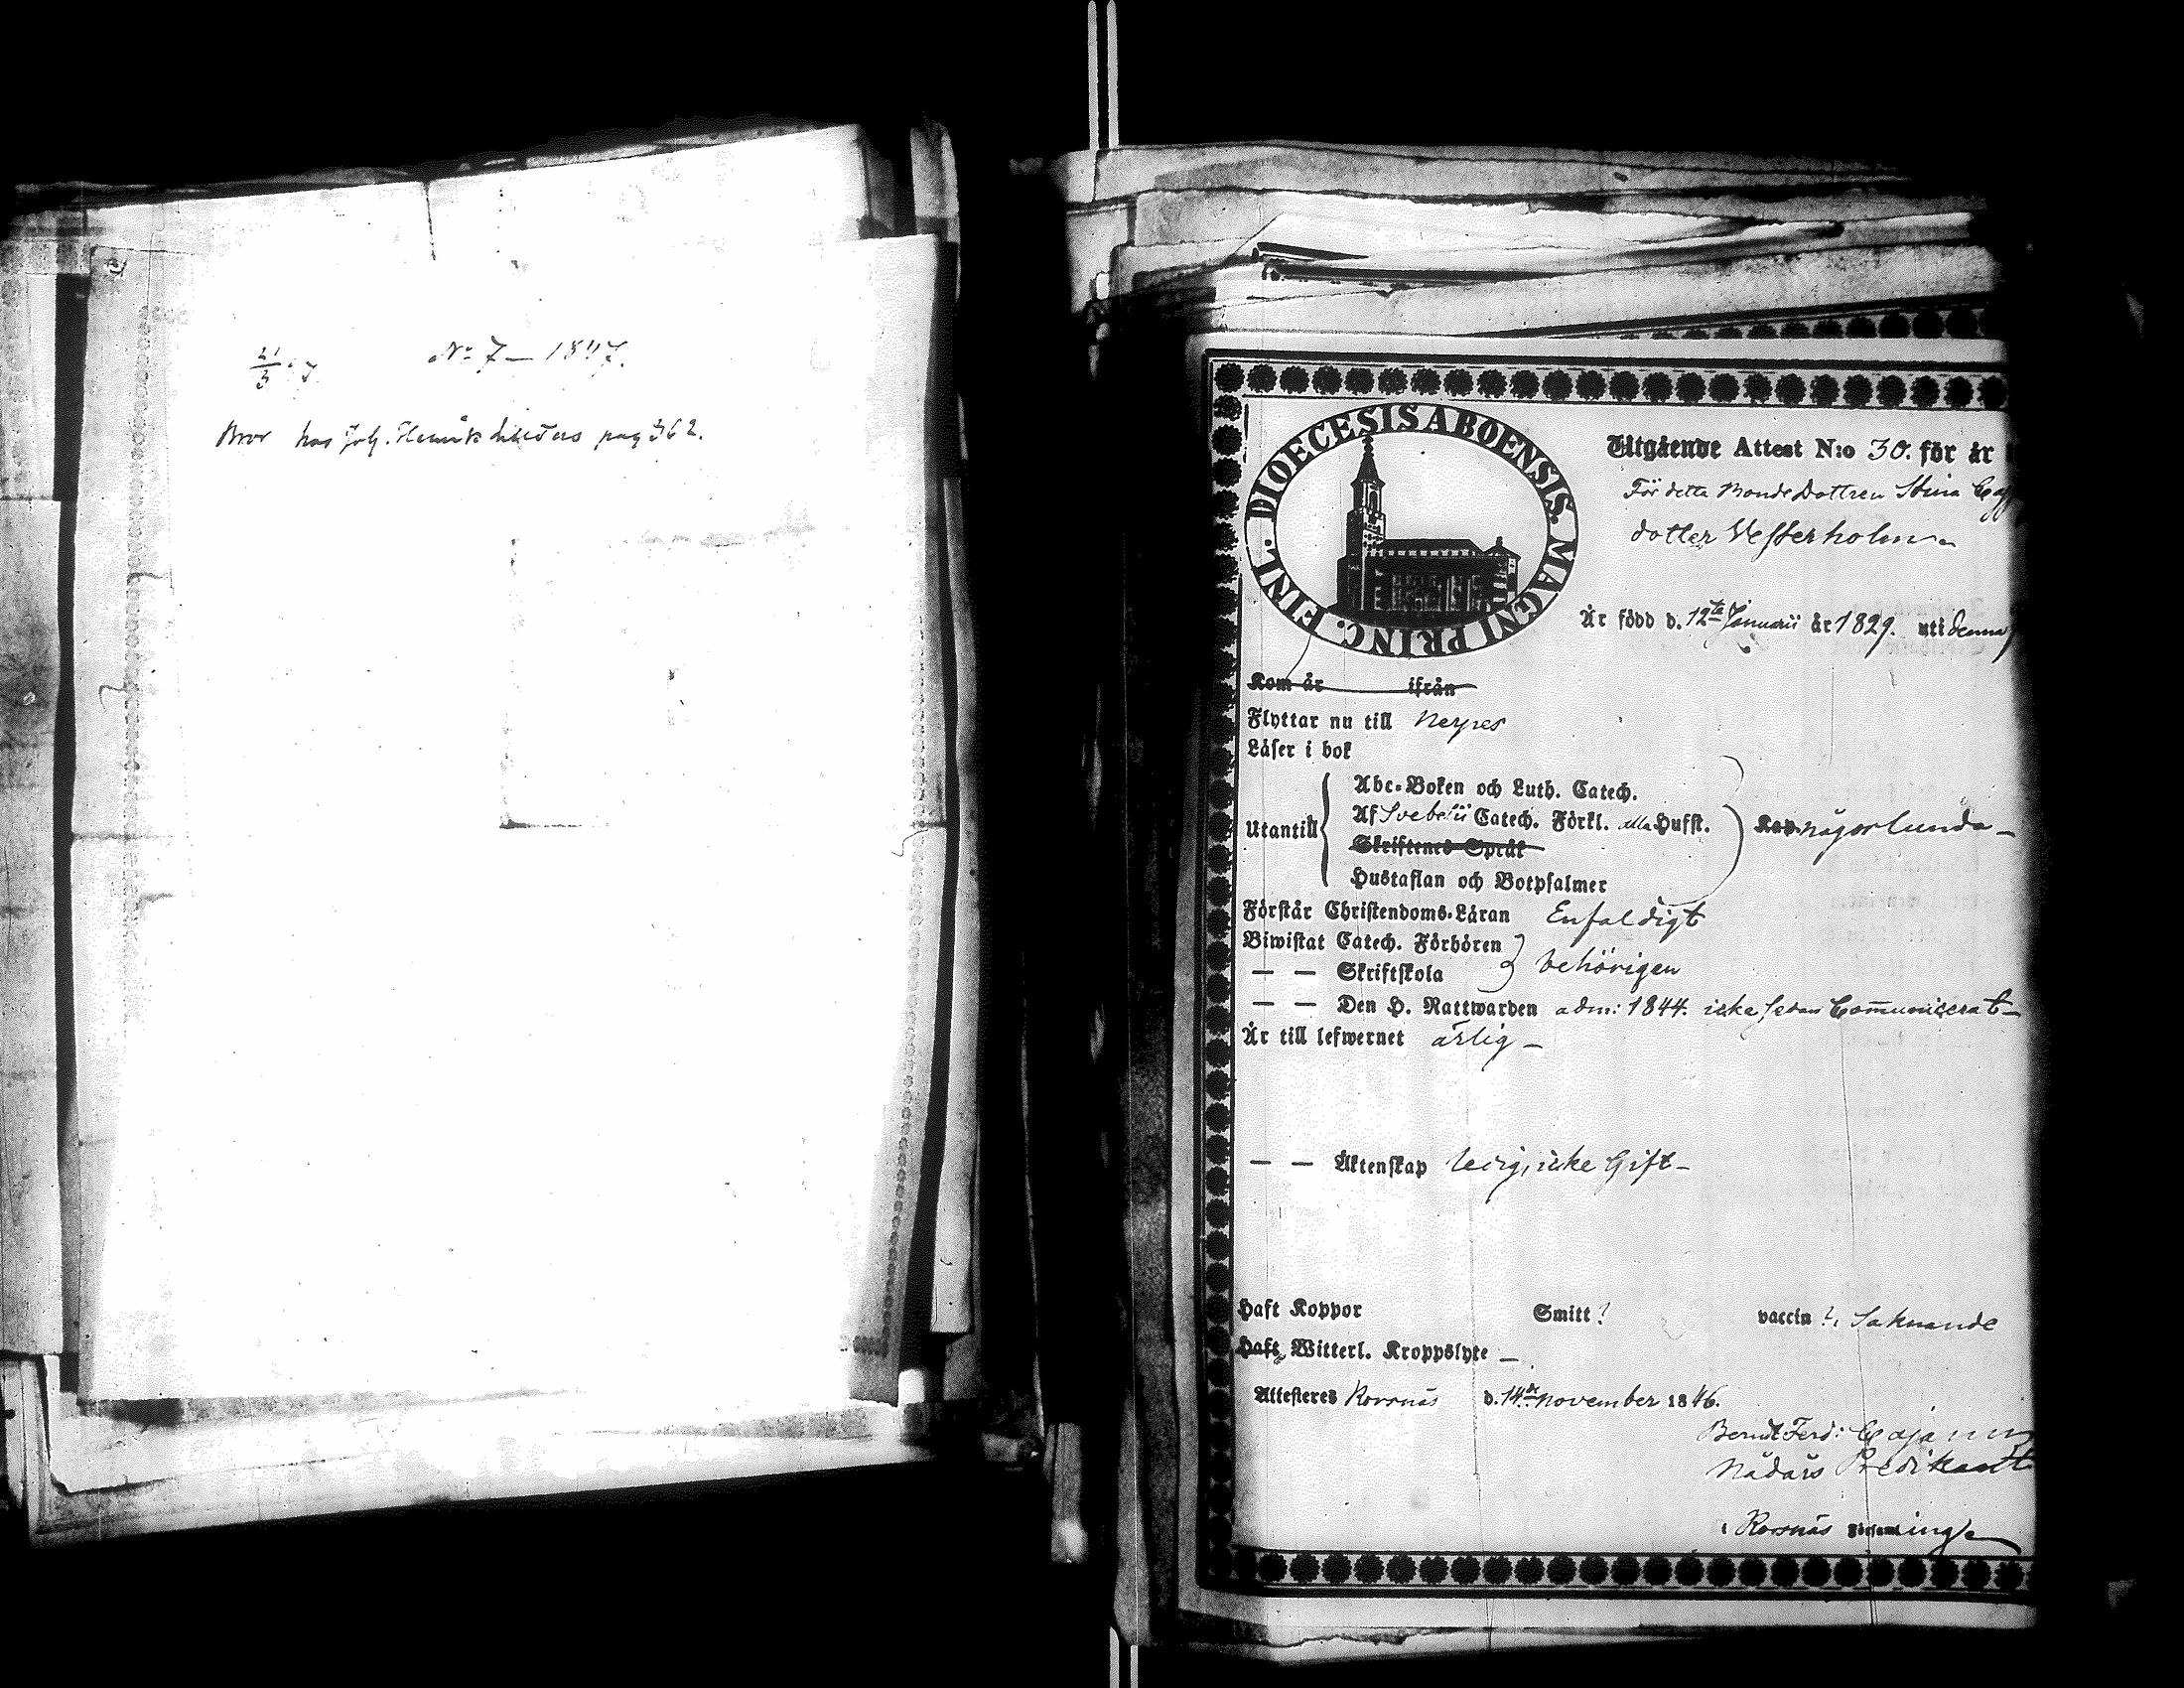 21/3 47.
No 7 — 1847.
Bror hos Joh. Henrik pag 362.
DIOECESIS ABOENSIS. MAGNI PRINC. FINL.
Utgående Attest N:o 30. för år
För detta Bonde Dottren Stina Caj
dotter Westerholm
Är född d. 12te Januarii år 1829. uti denna
Kom år ifrån
Flyttar nu till Nerpes
Läser i bok
Utantill
Abc-Boken och Luth. Catech.
Af Svebelii Catech. Förkl. alla Hufst.
Skriftenes Språk
Hustaflan och Botpsalmer
Kap. någorlunda
Förstår Christendoms-Läran Enfaldigt
Biwistat Catech. Förhören
— — Skriftskola
behörigen
— — Den H. Nattwarden adm: 1844. icke sedan Communicerat
Är till lefwernet ärlig
— — Äktenskap ledig, icke Gift
Haft Koppor Smitt? vaccin?, Saknande
Haft Witterl. Kroppslyte —
Attesteras Korsnäs d. 14de November 1846.
Berndt Ferd: Cajanus
Nådårs Predikant
i Korsnäs Församling